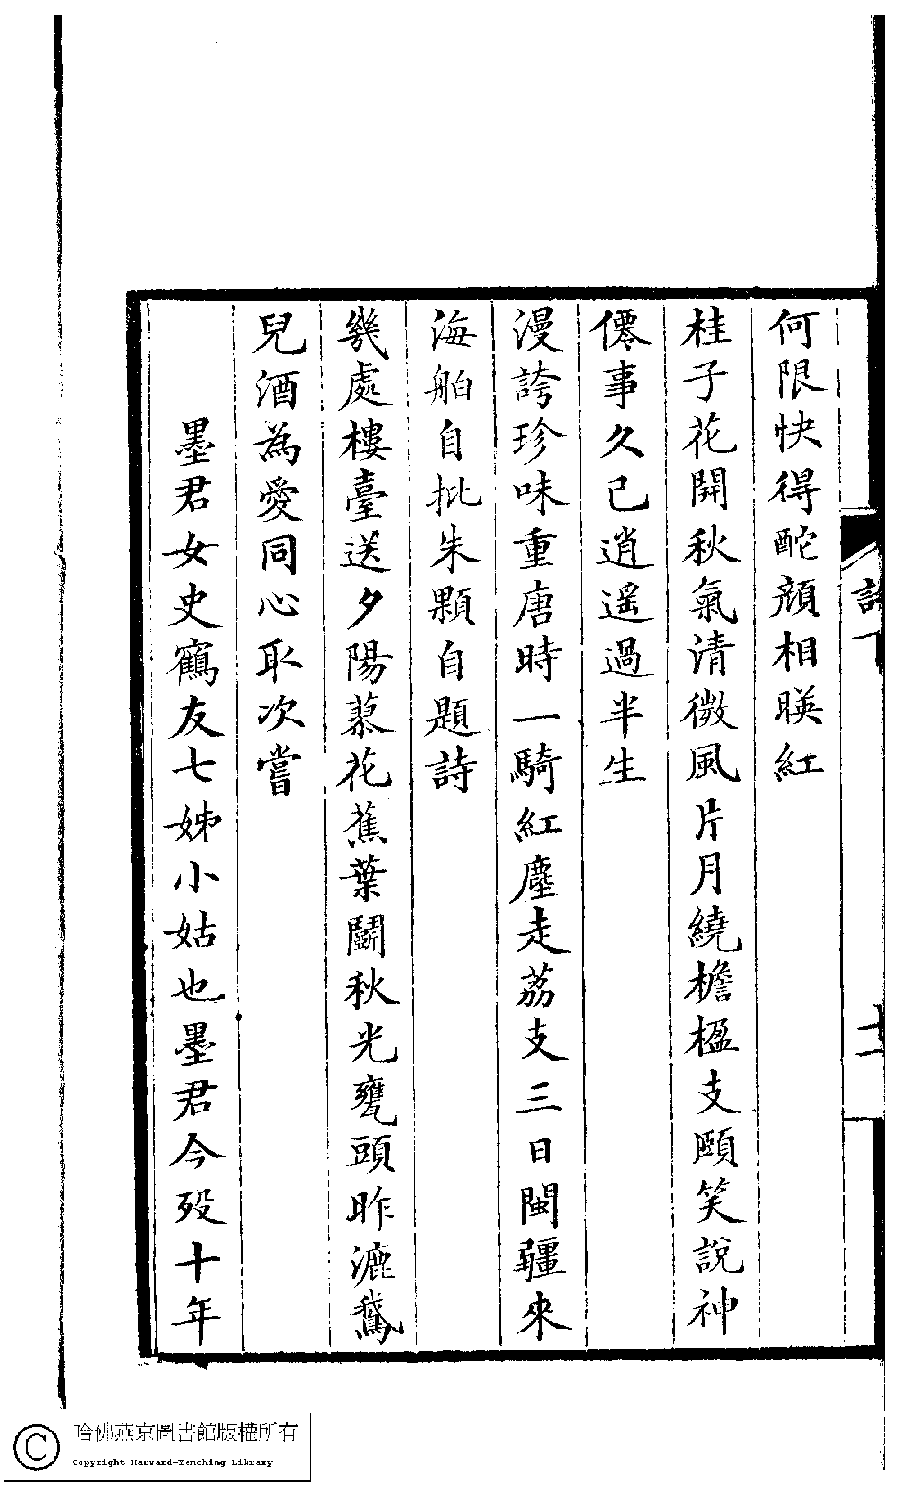 何限快得酡顔相暎紅
桂子花開秋氣清微風片月繞檐楹支頤笑說神
僊事久已逍遥過半生
漫誇珍味重唐時一騎紅塵走荔支三日閩疆來
海舶自批朱顆自題詩
幾處樓臺送夕陽慕花蕉葉鬭秋光甕頭昨漉鵞
兒酒為愛同心取次嘗
墨君女史鶴友七姊小姑也墨君今歿十年
十一
哈佛燕京圖書館版權所有
Copyright Harvard-Yenching Library